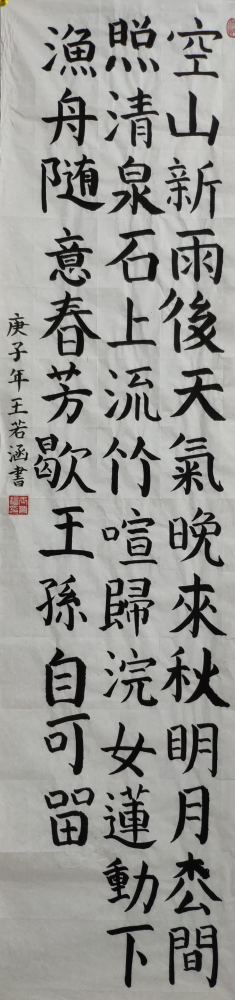 空山新雨後天氣晚來秋明月枩間
照清泉石上流竹喧歸浣女蓮動下
漁舟随意春芳歇王孫自可畄
庚子年王若涵書